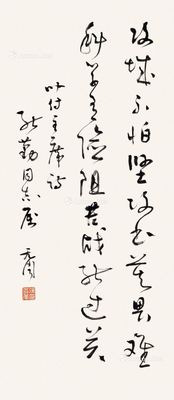 攻城不怕坚攻书莫畏难
科学有险阻苦战能过关
叶付主席诗
勤同志属